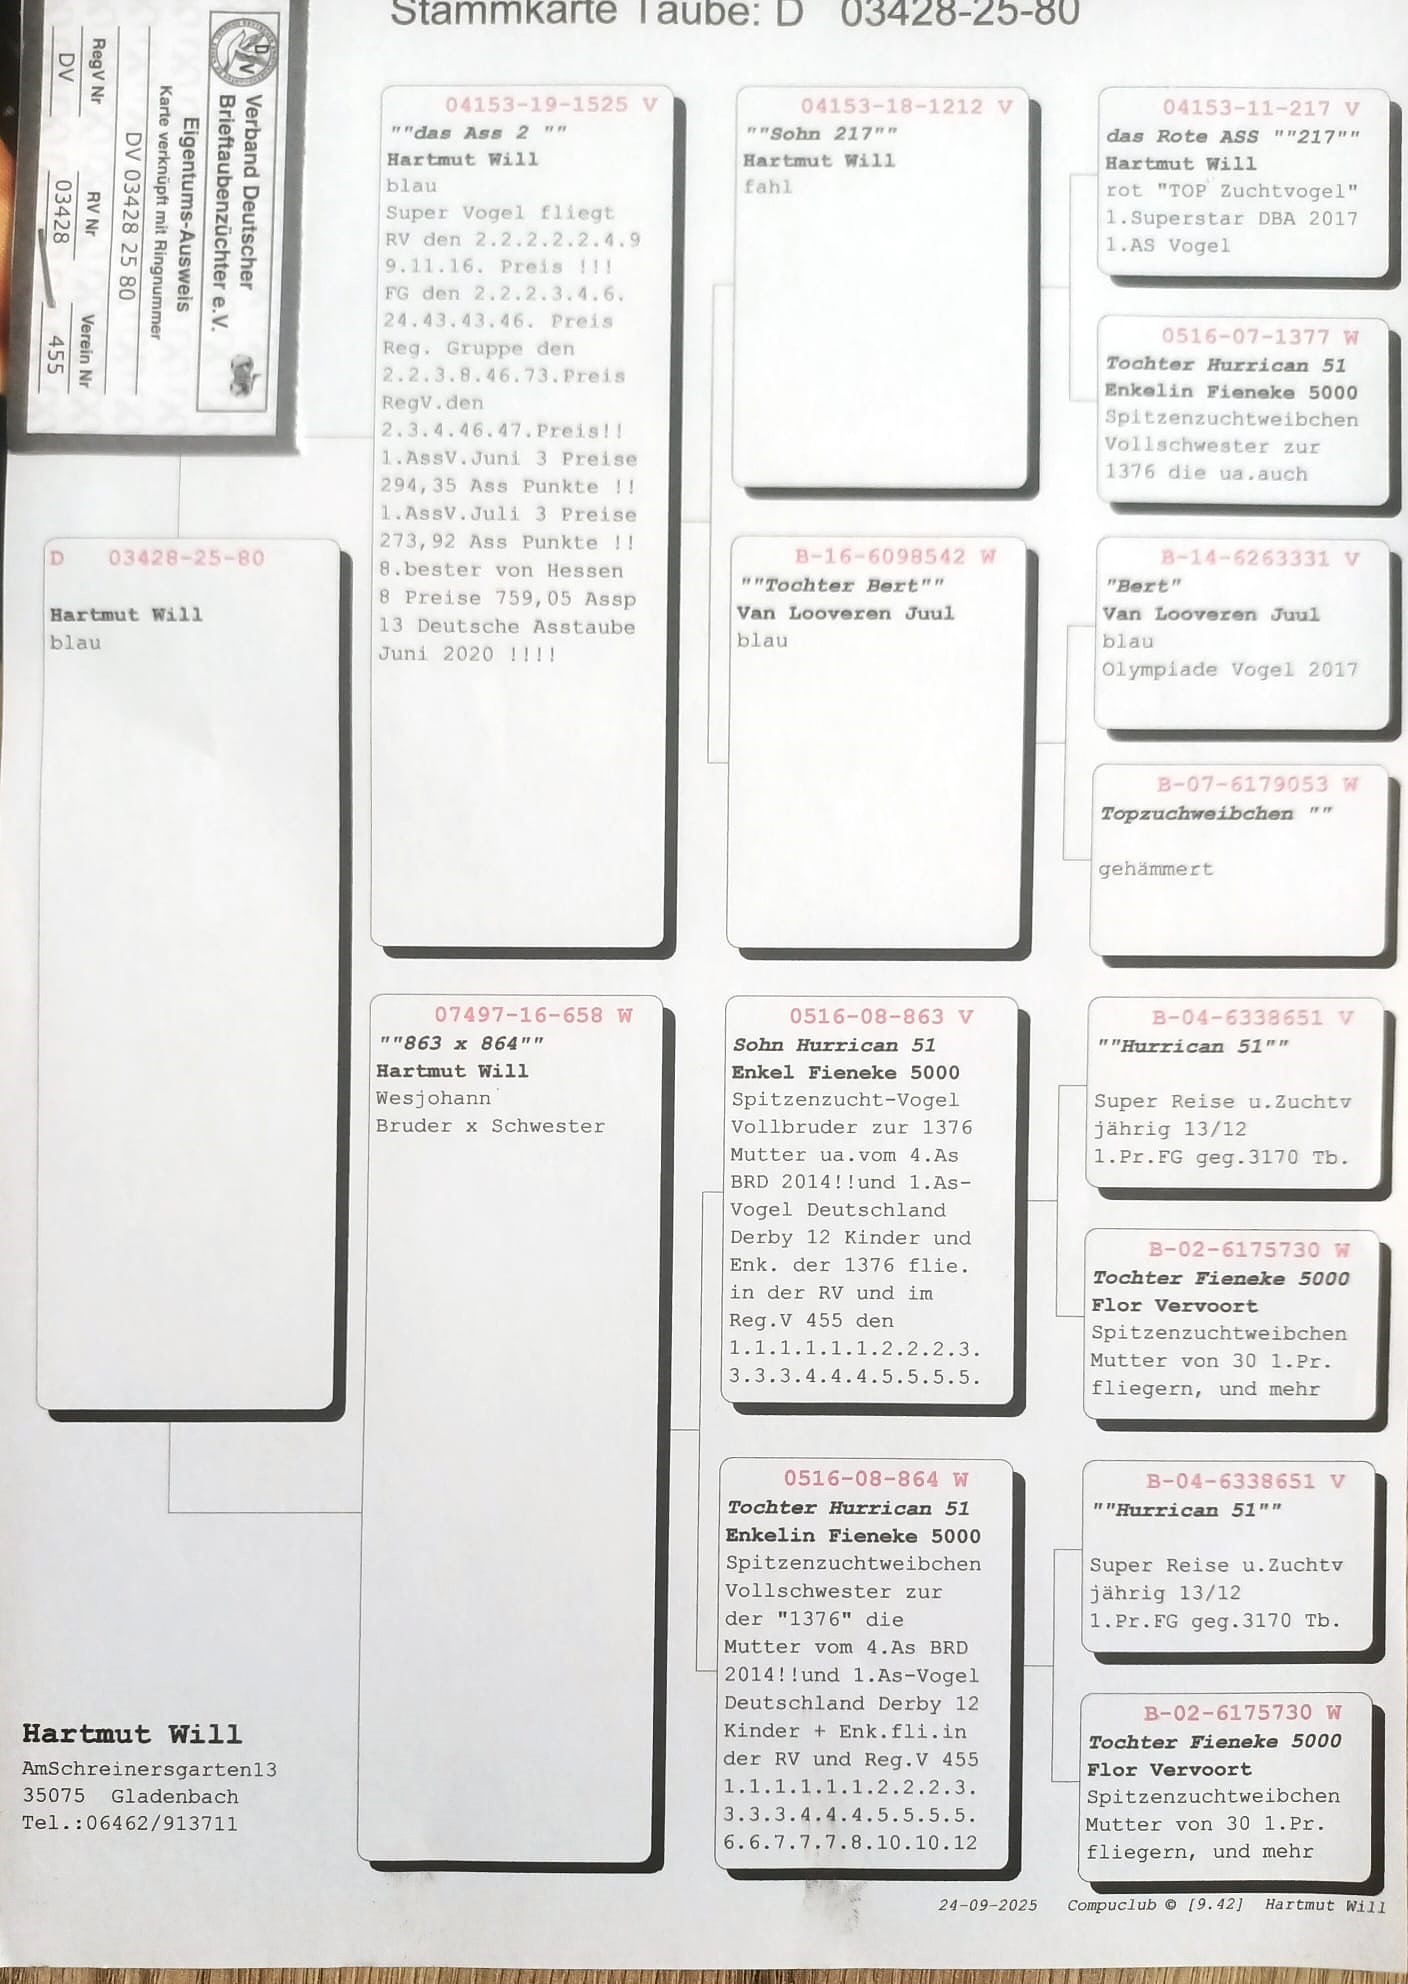 Stammkarte Taube: D 03428-25-80
Verband Deutscher
Brieftaubenzüchter e.V.
Eigentums-Ausweis
Karte verknüpft mit Ringnummer
DV 03428 25 80
RegV Nr RV Nr Verein Nr
DV 03428 455
D 03428-25-80
Hartmut Will
blau
04153-19-1525 V
""das Ass 2 ""
Hartmut Will
blau
Super Vogel fliegt
RV den 2.2.2.2.2.4.9
9.11.16. Preis !!!
FG den 2.2.2.3.4.6.
24.43.43.46. Preis
Reg. Gruppe den
2.2.3.8.46.73.Preis
RegV.den
2.3.4.46.47.Preis!!
1.AssV.Juni 3 Preise
294,35 Ass Punkte !!
1.AssV.Juli 3 Preise
273,92 Ass Punkte !!
8.bester von Hessen
8 Preise 759,05 Assp
13 Deutsche Asstaube
Juni 2020 !!!!
07497-16-658 W
""863 x 864""
Hartmut Will
Wesjohann
Bruder x Schwester
04153-18-1212 V
""Sohn 217""
Hartmut Will
fahl
B-16-6098542 W
""Tochter Bert""
Van Looveren Juul
blau
0516-08-863 V
Sohn Hurrican 51
Enkel Fieneke 5000
Spitzenzucht-Vogel
Vollbruder zur 1376
Mutter ua.vom 4.As
BRD 2014!!und 1.As-
Vogel Deutschland
Derby 12 Kinder und
Enk. der 1376 flie.
in der RV und im
Reg.V 455 den
1.1.1.1.1.1.2.2.2.3.
3.3.3.4.4.4.5.5.5.5.
0516-08-864 W
Tochter Hurrican 51
Enkelin Fieneke 5000
Spitzenzuchtweibchen
Vollschwester zur
der "1376" die
Mutter vom 4.As BRD
2014!!und 1.As-Vogel
Deutschland Derby 12
Kinder + Enk.fli.in
der RV und Reg.V 455
1.1.1.1.1.1.2.2.2.3.
3.3.3.4.4.4.5.5.5.5.
6.6.7.7.7.8.10.10.12
04153-11-217 V
das Rote ASS ""217""
Hartmut Will
rot "TOP Zuchtvogel"
1.Superstar DBA 2017
1.AS Vogel
0516-07-1377 W
Tochter Hurrican 51
Enkelin Fieneke 5000
Spitzenzuchtweibchen
Vollschwester zur
1376 die ua.auch
B-14-6263331 V
"Bert"
Van Looveren Juul
blau
Olympiade Vogel 2017
B-07-6179053 W
Topzuchweibchen ""
gehämmert
B-04-6338651 V
""Hurrican 51""
Super Reise u.Zuchtv
jährig 13/12
1.Pr.FG geg.3170 Tb.
B-02-6175730 W
Tochter Fieneke 5000
Flor Vervoort
Spitzenzuchtweibchen
Mutter von 30 1.Pr.
fliegern, und mehr
B-04-6338651 V
""Hurrican 51""
Super Reise u.Zuchtv
jährig 13/12
1.Pr.FG geg.3170 Tb.
B-02-6175730 W
Tochter Fieneke 5000
Flor Vervoort
Spitzenzuchtweibchen
Mutter von 30 1.Pr.
fliegern, und mehr
Hartmut Will
AmSchreinersgarten13
35075 Gladenbach
Tel.:06462/913711
24-09-2025 Compuclub © [9.42] Hartmut Will